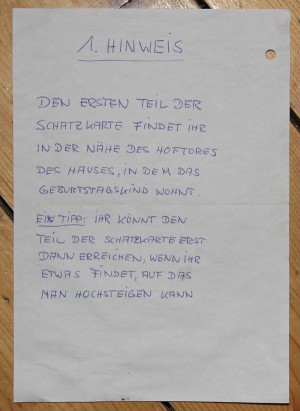 1. HINWEIS
DEN ERSTEN TEIL DER
SCHATZKARTE FINDET IHR
IN DER NÄHE DES HOFTORES
DES HAUSES, IN DEM DAS
GEBURTSTAGSKIND WOHNT.
EIN TIPP: IHR KÖNNT DEN
TEIL DER SCHATZKARTE ERST
DANN ERREICHEN, WENN IHR
ETWAS FINDET, AUF DAS
MAN HOCHSTEIGEN KANN